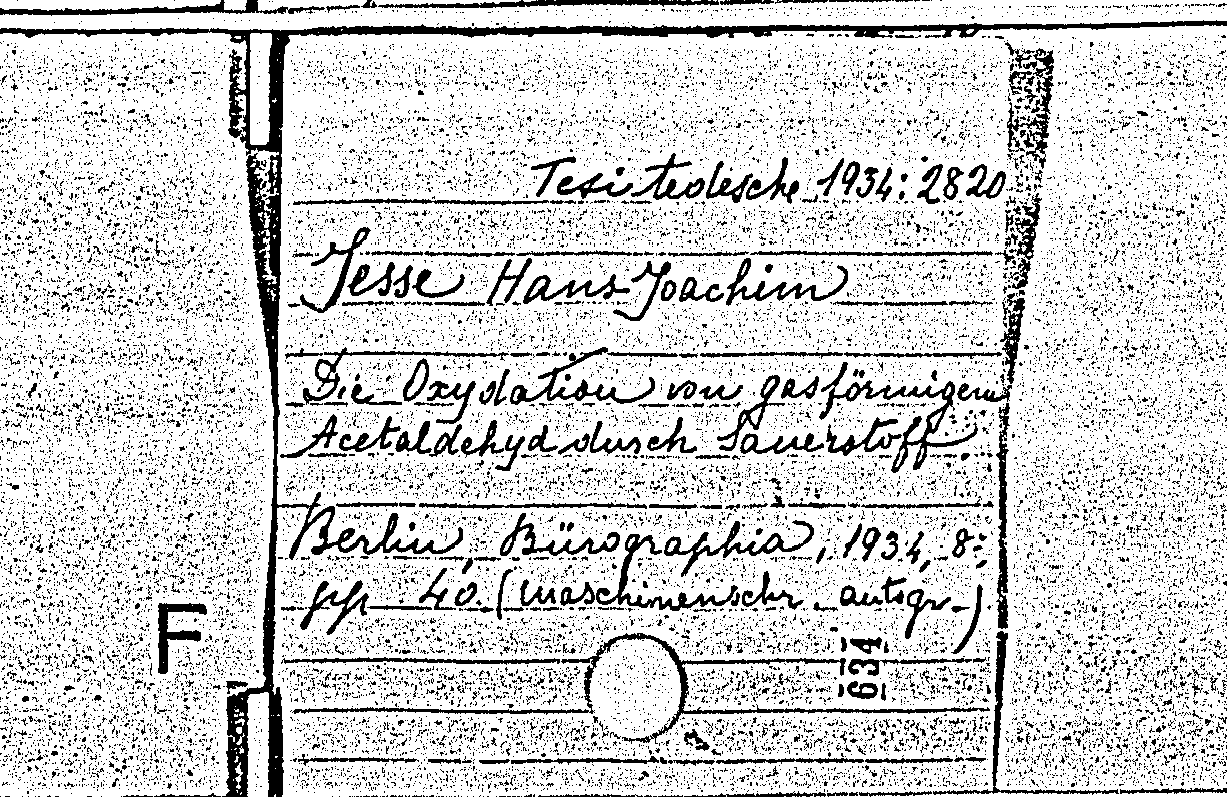 Tesi tedesche 1934: 2820
Jesse Hans-Joachim
Die Oxydation von gasförmigem
Acetaldehyd durch Sauerstoff.
Berlin, Bürographia, 1934, 8:
pp. 40. (maschinenschr. autogr.)
F
634